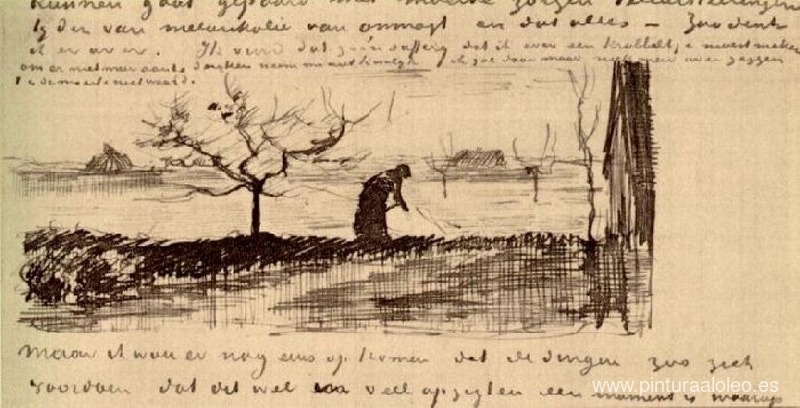 kunnen gaat gepaard met moeite zorgen teleurstellingen
tijden van melankolie van onmagt en dat alles – Zoo denk
ik er over. Ik vind dat dat ik even een krabbeltje moest maken
om er niet meer aan te denken neem me niet kwalijk ik zal maar over zeggen
de moeite niet waard.
Maar ik wou er nog eens op komen dat de dingen zoo zich
voordoen dat dit wel veel opzigten een moment is waarop
www.pinturaaloleo.es